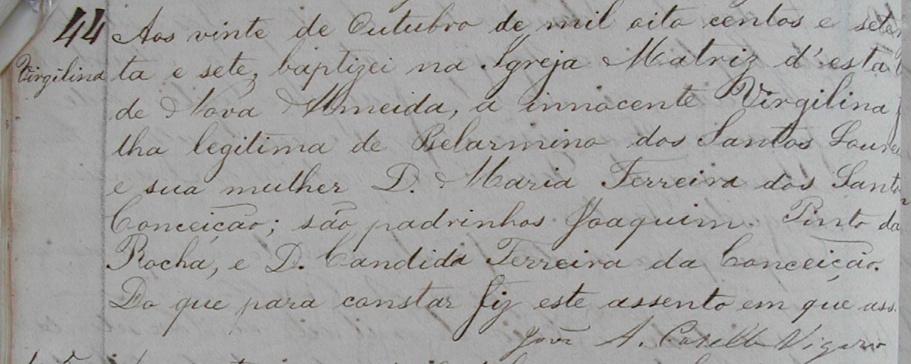 44 Aos vinte de Outubro de mil oito centos e seten
Virgilina ta e sete, baptizei na Igreja Matriz d'esta
de Nova Almeida, a innocente Virgilina fi
lha legitima de Belarmino dos Santos Lour
e sua mulher D. Maria Ferreira dos Santos
Conceição; são padrinhos Joaquim Pinto da
Rocha, e D. Candida Ferreira da Conceição.
Do que para constar fiz este assento em que ass.
José A. Vigario